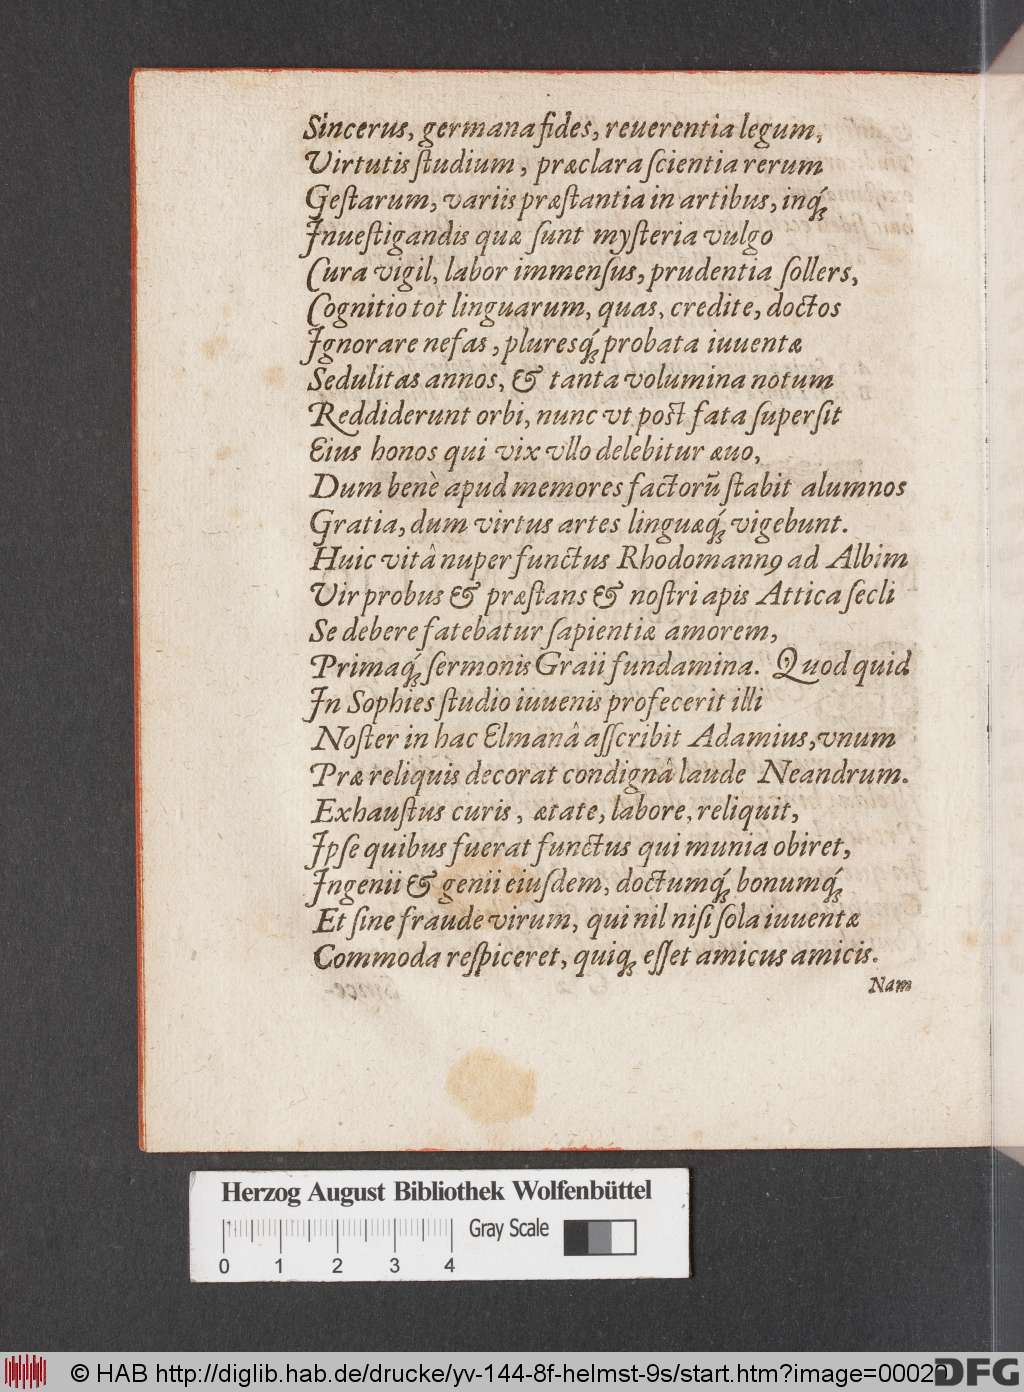 Sincerus, germana fides, reuerentia legum,
Virtutis ſtudium, præclara ſcientia rerum
Geſtarum, variis præſtantia in artibus, inq́;
Inueſtigandis quæ ſunt myſteria vulgo
Cura vigil, labor immenſus, prudentia ſollers,
Cognitio tot linguarum, quas, credite, doctos
Ignorare nefas, pluresq́; probata iuuentæ
Sedulitas annos, & tanta volumina notum
Reddiderunt orbi, nunc vt poſt fata ſuperſit
Eius honos qui vix vllo delebitur æuo,
Dum benè apud memores factorũ ſtabit alumnos
Gratia, dum virtus artes linguæq́; vigebunt.
Huic vitâ nuper functus Rhodomannꝰ ad Albim
Vir probus & præſtans & noſtri apis Attica ſecli
Se debere fatebatur ſapientiæ amorem,
Primaq́; ſermonis Graii fundamina. Quod quid
In Sophies ſtudio iuuenis profecerit illi
Noſter in hac Elmanâ aſſcribit Adamius, vnum
Præ reliquis decorat condignâ laude Neandrum.
Exhauſtus curis, ætate, labore, reliquit,
Ipſe quibus fuerat functus qui munia obiret,
Ingenii & genii eiuſdem, doctumq́; bonumq́;
Et ſine fraude virum, qui nil niſi ſola iuuentæ
Commoda reſpiceret, quiq; eſſet amicus amicis.
Nam
Herzog August Bibliothek Wolfenbüttel
Gray Scale
0 1 2 3 4
© HAB http://diglib.hab.de/drucke/yv-144-8f-helmst-9s/start.htm?image=00020
DFG